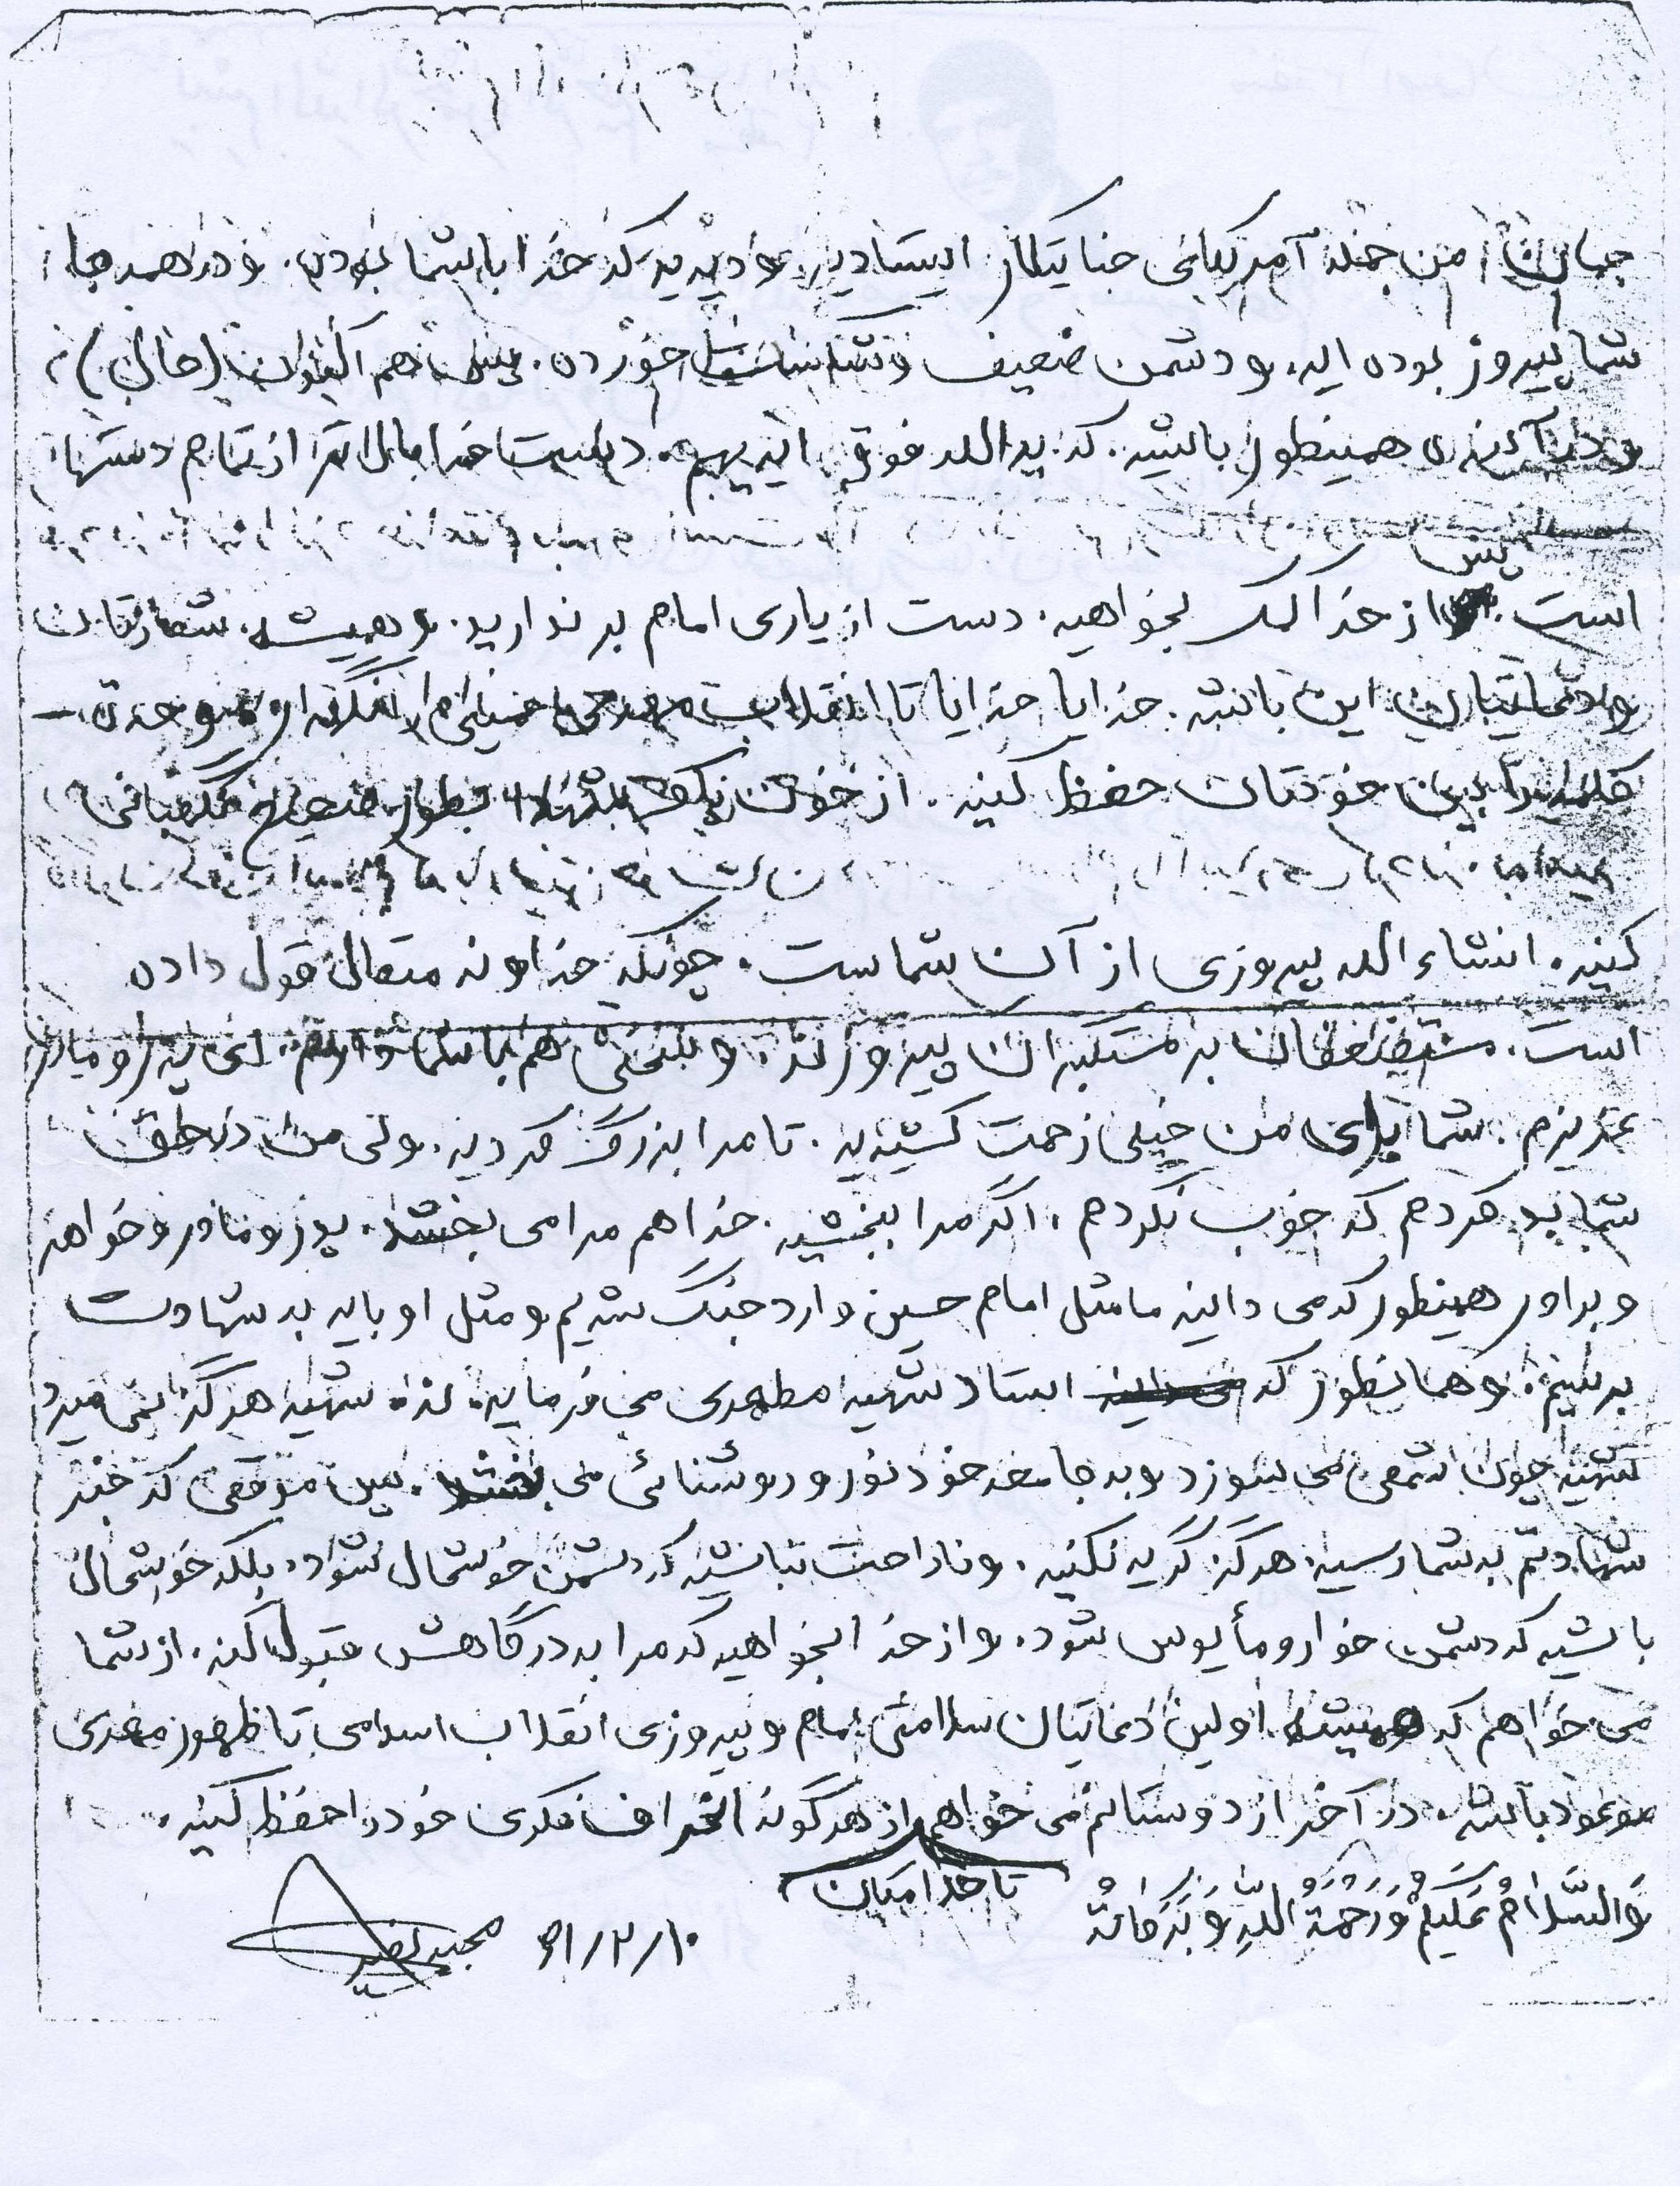 جهان من جمله آمریکای جنایتکار ایستادید و دیدید که خدا با شما بوده. و در همه جا
شما پیروز بوده اید. و دشمن ضعیف و شکست خورده. پس هم اکنون (حال)
و در آینده همینطور باشید. که یدالله فوق ایدیهم. دست خدا بالاتر از تمام دستها
پس
است. از خدا کمک بخواهید. دست از یاری امام بر ندارید. و همیشه شعارتان
و دعایتان این باشد. خدایا خدایا تا انقلاب مهدی خمینی را نگهدار و وحدت
کلمه را بین خودتان حفظ کنید. از خون شهدا بطور صحیح نگهبانی
کنید. انشاء الله پیروزی از آن شماست. چونکه خداوند متعال قول داده
است. مستضعفان بر مستکبران پیروزند. و سخنی هم با شما دارم. ای پدر و مادر
عزیزم. شما برای من خیلی زحمت کشیدید. تا مرا بزرگ کردید. ولی من در حق
شما بد کردم که خوب نکردم. اگر مرا ببخشید. خدا هم مرا می بخشد. پدر و مادر و خواهر
و برادر همینطور که می دانید ما مثل امام حسین وارد جنگ شدیم و مثل او باید به شهادت
برسیم. و همانطور که استاد شهید مطهری می فرماید. شهید هرگز نمی میرد
شهید چون شمعی می سوزد و به جامعه خود نور و روشنائی می بخشد. پس موقعی که خبر
شهادتم به شما رسید. هرگز گریه نکنید. و ناراحت نباشید که دشمن خوشحال شود. بلکه خوشحال
باشید که دشمن خوار و مأیوس شود. و از خدا بخواهید که مرا به درگاهش قبول کند. از شما
می خواهم که همیشه اولین دعایتان سلامتی امام و پیروزی انقلاب اسلامی تا ظهور مهدی
موعود باشد. در آخر از دوستانم می خواهم از هر گونه انحراف فکری خود را حفظ کنید.
وَالسَّلامُ عَلَیکُم وَرَحمَةُ اللهِ وَ بَرَکاتُهُ
تا خدا
۶۱/۲/۱۰
مجید